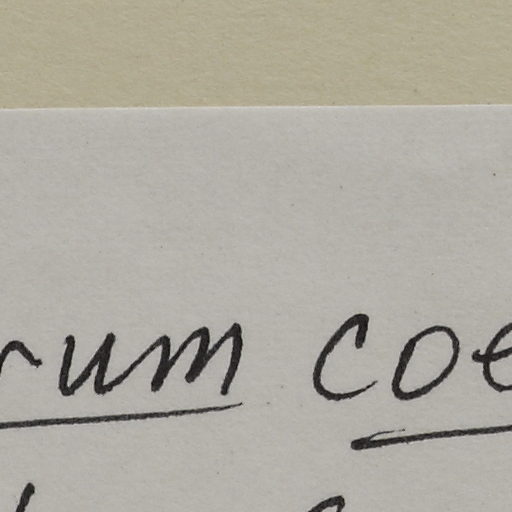 rum coe